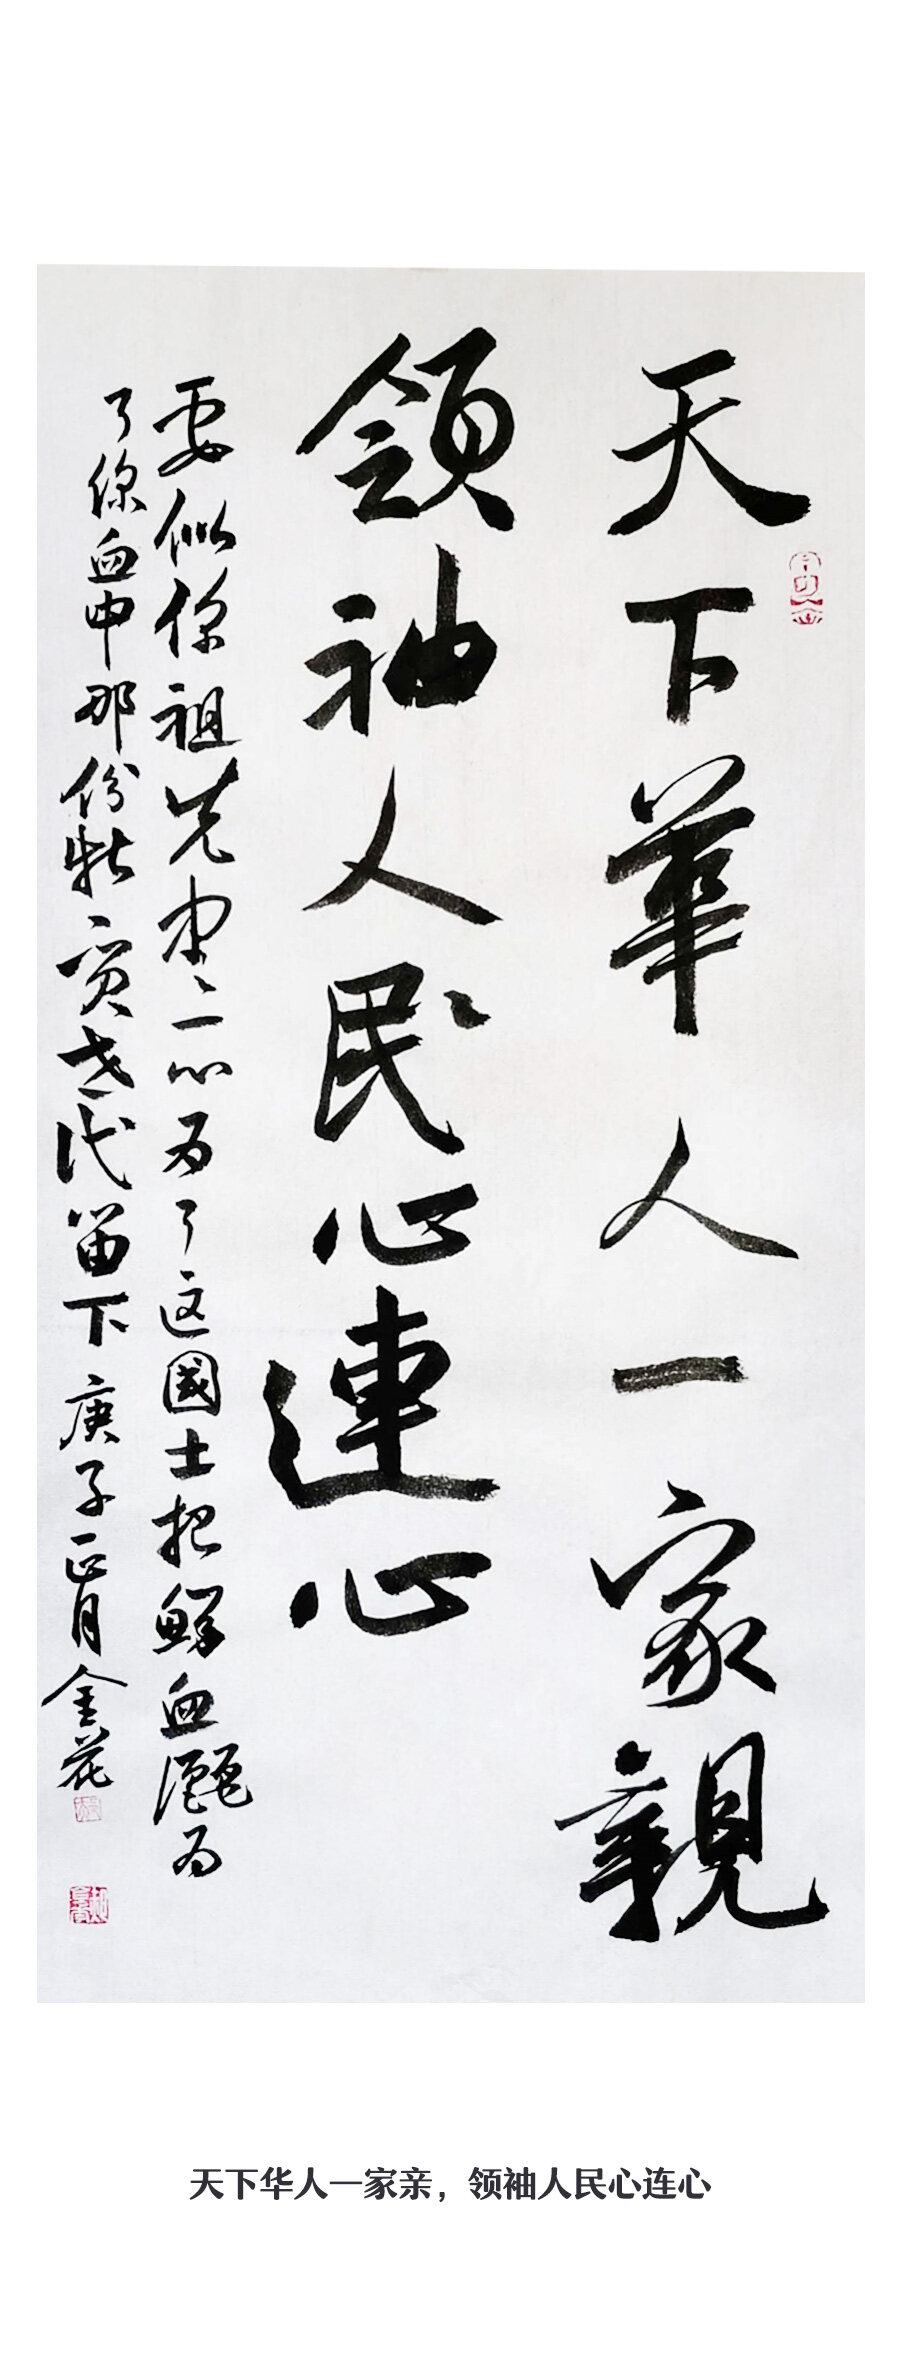 天下華人一家親
領袖人民心連心
要似你祖先一心为了这國土把鲜血灑为
了你血中那份世代留下 庚子正月 金花
天下华人一家亲，领袖人民心连心